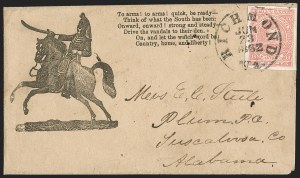 To arms! to arms! quick, be ready—
Think of what the South has been;
Onward, onward! strong and steady—
Drive the vandals to their den.
On, and let the watchword be
Country, home, and liberty!
RICHMOND
JUN
23
1862
VA.
E. C.
Plum P.O.
Tuscaloosa, Co
Alabama.